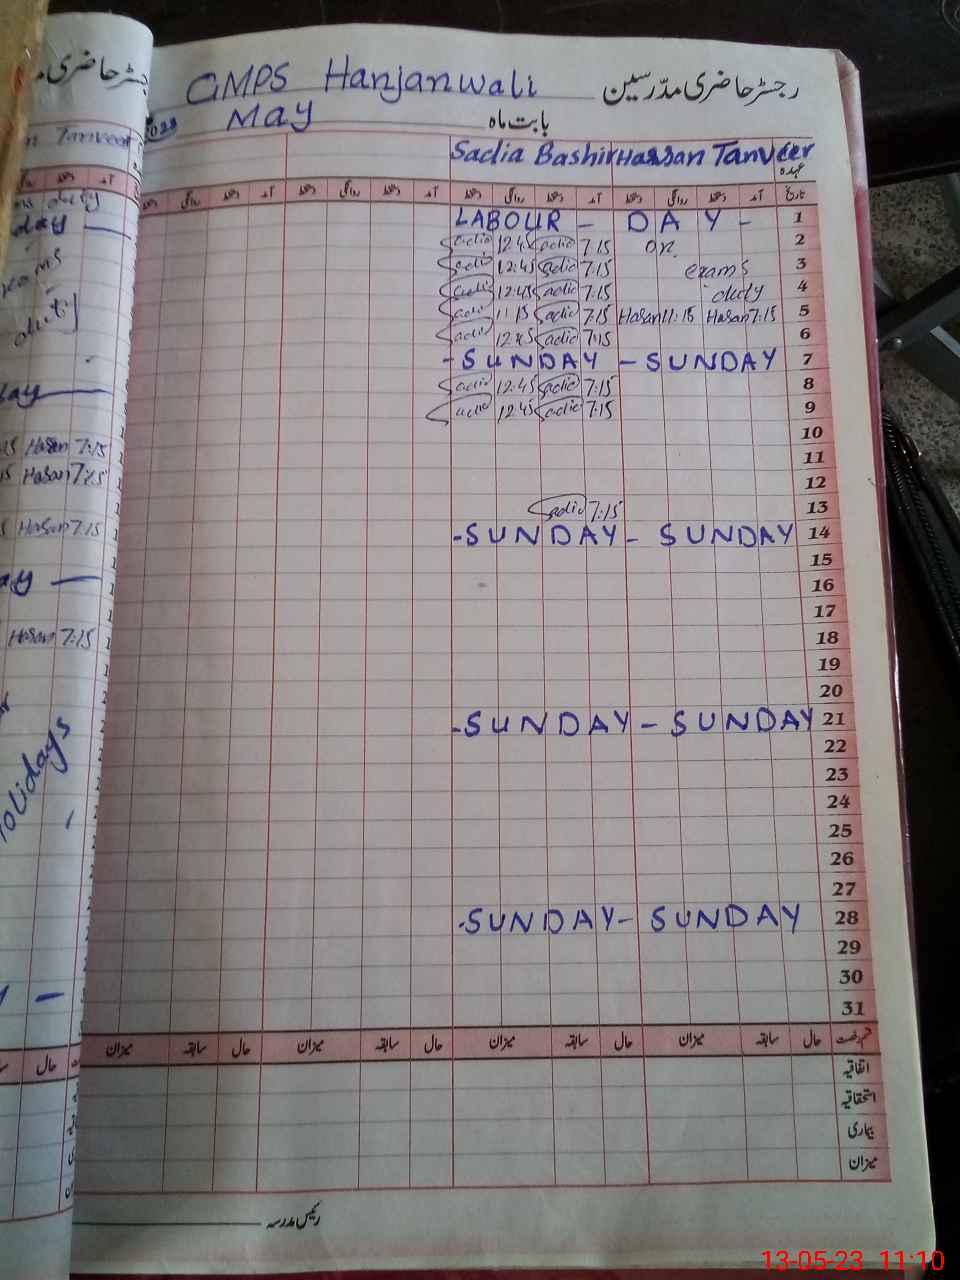 GMPS Hanjanwali رجسٹر حاضری مدرسین
2023 May بابت ماہ
Sadia Bashir Hassan Tanveer
عہدہ
تاریخ آمد دستخط روانگی دستخط آمد دستخط روانگی دستخط آمد دستخط روانگی دستخط آمد دستخط روانگی دستخط
LABOUR - DAY - 1
Sadia 12:45 Sadia 7:15 on 2
Sadia 12:45 Sadia 7:15 exams 3
Sadia 12:45 Sadia 7:15 duty 4
Sadia 11:15 Sadia 7:15 Hasan 11:15 Hasan 7:15 5
Sadia 12:45 Sadia 7:15 6
- SUNDAY - SUNDAY 7
Sadia 12:45 Sadia 7:15 8
Sadia 12:45 Sadia 7:15 9
10
11
12
Sadia 7:15 13
- SUNDAY - SUNDAY 14
15
16
17
18
19
20
- SUNDAY - SUNDAY 21
22
23
24
25
26
27
- SUNDAY - SUNDAY 28
29
30
31
حال سابقہ میزان حال سابقہ میزان حال سابقہ میزان حال سابقہ میزان
اتفاقیہ
استحقاقیہ
بیماری
میزان
رئیس مدرسہ
Tanveer
duty
day
exams
duty
Hasan 7:15
Hasan 7:15
Hasan 7:15
Hasan 7:15
Holidays
حال
13-05-23 11:10